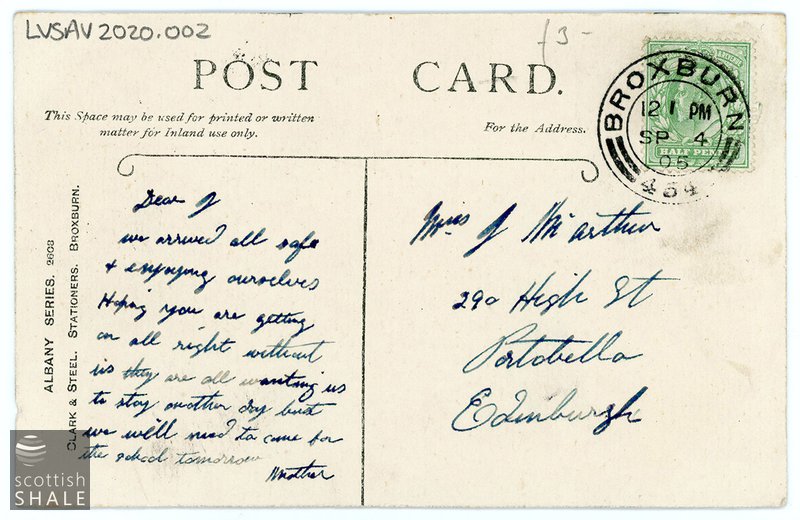 LVSAV2020.002
£3-
POST CARD.
This Space may be used for printed or written
matter for Inland use only.
For the Address.
BROXBURN
12 1 PM
SP 4
05
434
HALF PENNY
ALBANY SERIES. 2608
CLARK & STEEL. STATIONERS. BROXBURN.
Dear J
we arrived all safe
& enjoying ourselves
Hoping you are getting
on all right without
us they are all wanting us
to stay another day but
we will need to come for
the school tomorrow
Mother
Miss J McArthur
29a High St
Portobello
Edinburgh
scottish
SHALE